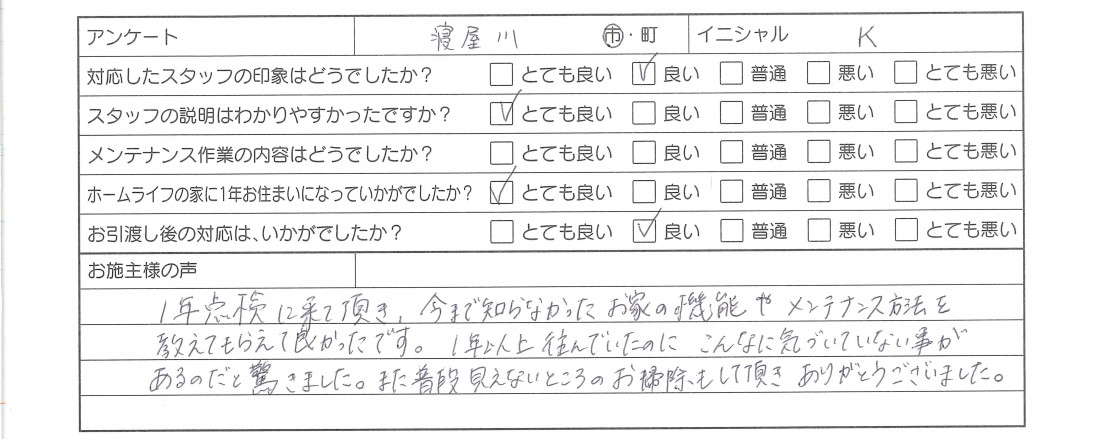 アンケート 寝屋川 市・町 イニシャル K
対応したスタッフの印象はどうでしたか? □とても良い ☑良い □普通 □悪い □とても悪い
スタッフの説明はわかりやすかったですか? ☑とても良い □良い □普通 □悪い □とても悪い
メンテナンス作業の内容はどうでしたか? □とても良い □良い □普通 □悪い □とても悪い
ホームライフの家に1年お住まいになっていかがでしたか? ☑とても良い □良い □普通 □悪い □とても悪い
お引渡し後の対応は、いかがでしたか? □とても良い ☑良い □普通 □悪い □とても悪い
お施主様の声
1年点検に来て頂き、今まで知らなかったお家の機能やメンテナンス方法を
教えてもらえて良かったです。1年以上住んでいたのにこんなに気づいていない事が
あるのだと驚きました。また普段見えないところのお掃除もして頂きありがとうございました。